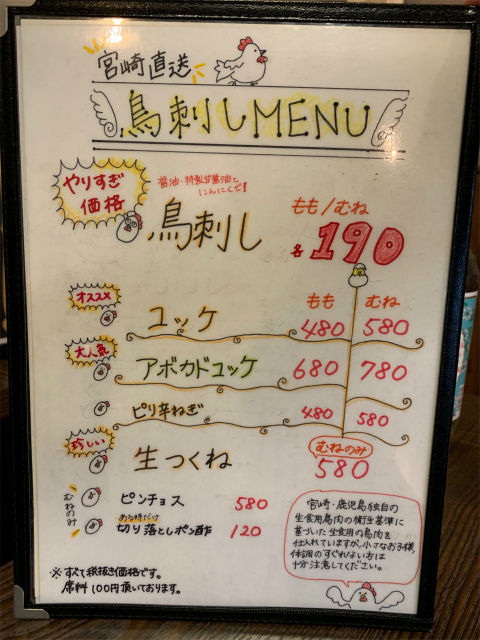 宮崎直送
鳥刺しMENU
やりすぎ
価格
醤油・特製甘醤油と
にんにくで!
鳥刺し
もも/むね
各190
もも むね
オススメ
ユッケ 480 580
大人気
アボカドユッケ 680 780
ピリ辛ねぎ 480 580
珍しい
生つくね
むねのみ
580
むねのみ
ピンチョス 580
ある時だけ
切り落としポン酢 120
宮崎・鹿児島独自の
生食用鳥肉の衛生基準に
基づいた生食用の鳥肉を
仕入れていますが、小さなお子様、
体調のすぐれない方は
十分注意してください。
※すべて税抜き価格です。
席料100円頂いております。